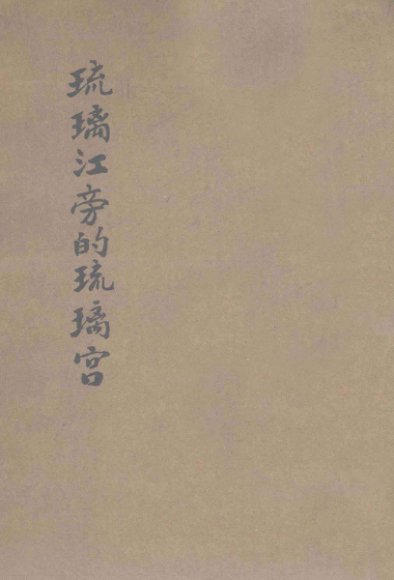 琉璃江旁的琉璃宫